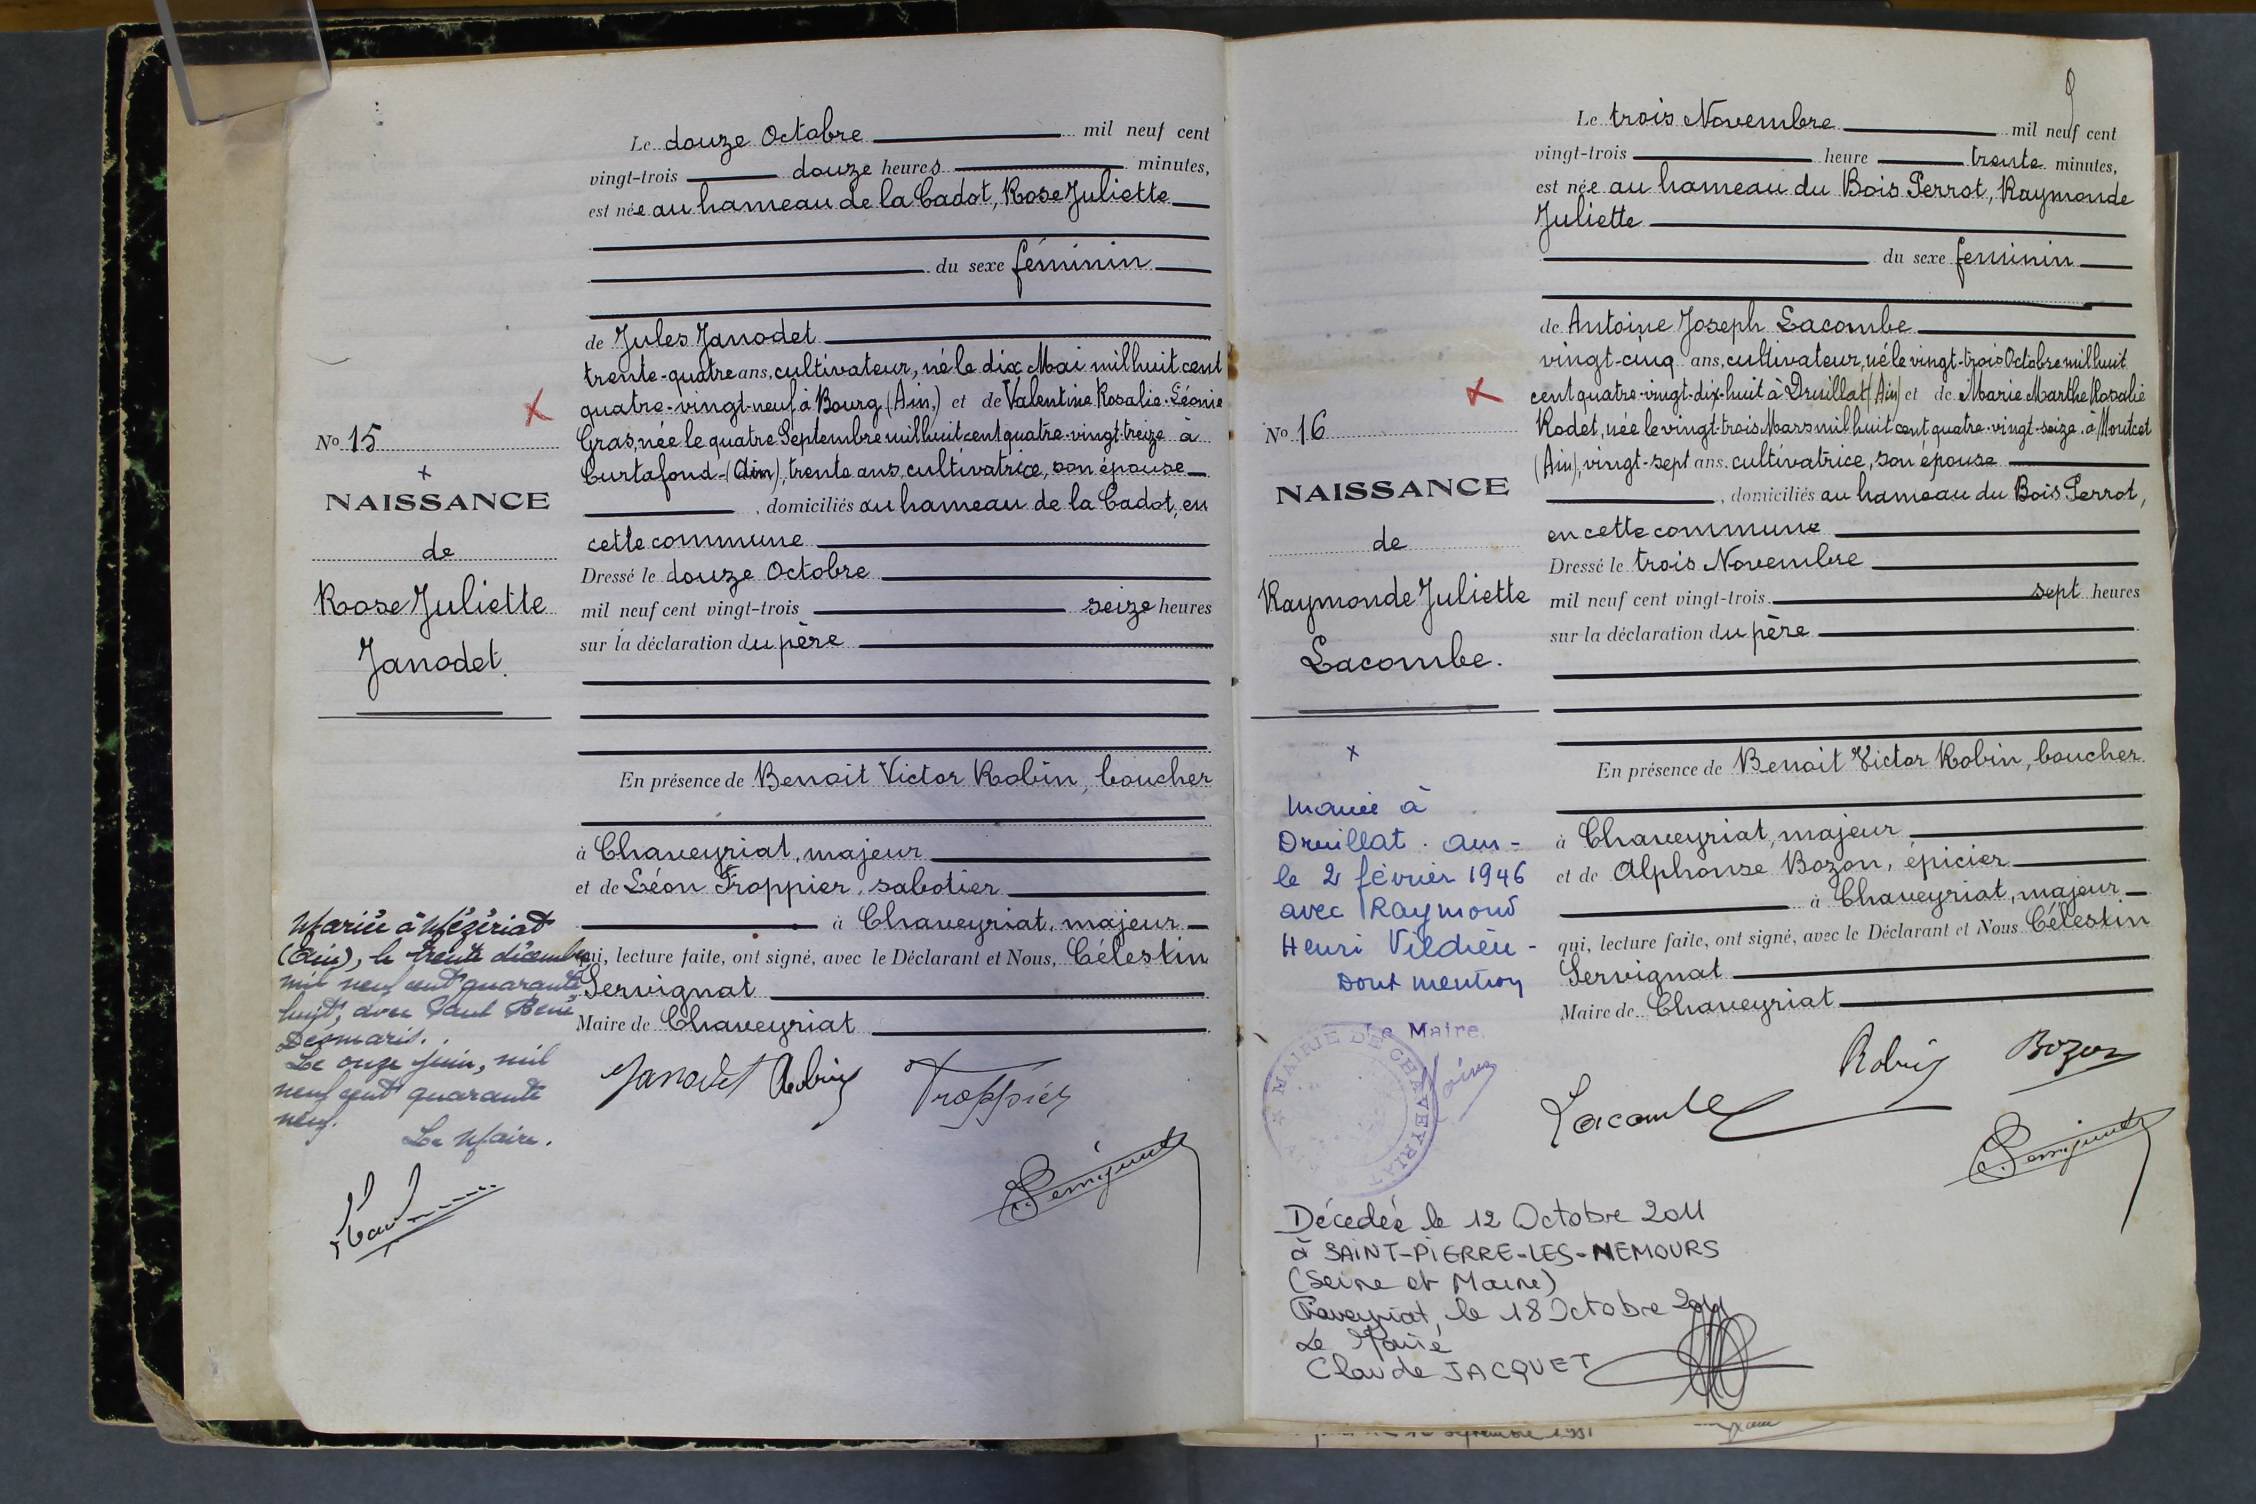 Le douze Octobre mil neuf cent
vingt-trois douze heures minutes,
est née au hameau de la Cadot, Rose Juliette
du sexe féminin
de Jules Janodet
trente-quatre ans, cultivateur, né le dix Mai mil huit cent
quatre-vingt-neuf à Bourg (Ain,) et de Valentine Rosalie Léonie
Gras, née le quatre Septembre mil huit cent quatre-vingt-treize à
Curtafond (Ain), trente ans, cultivatrice, son épouse
, domiciliés au hameau de la Cadot, en
cette commune
Dressé le douze Octobre
mil neuf cent vingt-trois seize heures
sur la déclaration du père
En présence de Benoit Victor Robin, boucher
à Chaveyriat, majeur
et de Léon Troppier, sabotier
à Chaveyriat, majeur
qui, lecture faite, ont signé, avec le Déclarant et Nous, Célestin
Servignat
Maire de Chaveyriat
Janodet Robin Troppier
C. Servignat
No 15
x
NAISSANCE
de
Rose Juliette
Janodet.
Mariée à Mézériat
(Ain), le trente décembre
mil neuf cent quarante
huit, avec Paul René
Desmaris.
Le onze juin, mil
neuf cent quarante
neuf.
Le Maire.
9
Le trois Novembre mil neuf cent
vingt-trois heure trente minutes,
est née au hameau du Bois Perrot, Raymonde
Juliette
du sexe féminin
de Antoine Joseph Lacombe
vingt-cinq ans, cultivateur, né le vingt-trois Octobre mil huit
cent quatre-vingt-dix-huit à Druillat (Ain) et de Marie Marthe Rosalie
Rodet, née le vingt-trois Mars mil huit cent quatre-vingt-seize à Montcet
(Ain), vingt-sept ans. cultivatrice, son épouse
, domiciliés au hameau du Bois Perrot,
en cette commune
Dressé le trois Novembre
mil neuf cent vingt-trois sept heures
sur la déclaration du père
En présence de Benoit Victor Robin, boucher
à Chaveyriat, majeur
et de Alphonse Bozon, épicier
à Chaveyriat, majeur
qui, lecture faite, ont signé, avec le Déclarant et Nous Célestin
Servignat
Maire de Chaveyriat
Lacombe Robin Bozon
C. Servignat
No 16
NAISSANCE
de
Raymonde Juliette
Lacombe.
x
Mariée à
Druillat. Ain -
le 2 février 1946
avec Raymond
Henri Vieldieu -
Dont mention
Le Maire,
MAIRIE DE CHAVEYRIAT
Décedée le 12 Octobre 2011
à SAINT-PIERRE-LES-NEMOURS
(Seine et Marne)
Chaveyriat, le 18 Octobre 2011
Le Maire
Claude JACQUET
septembre 1931